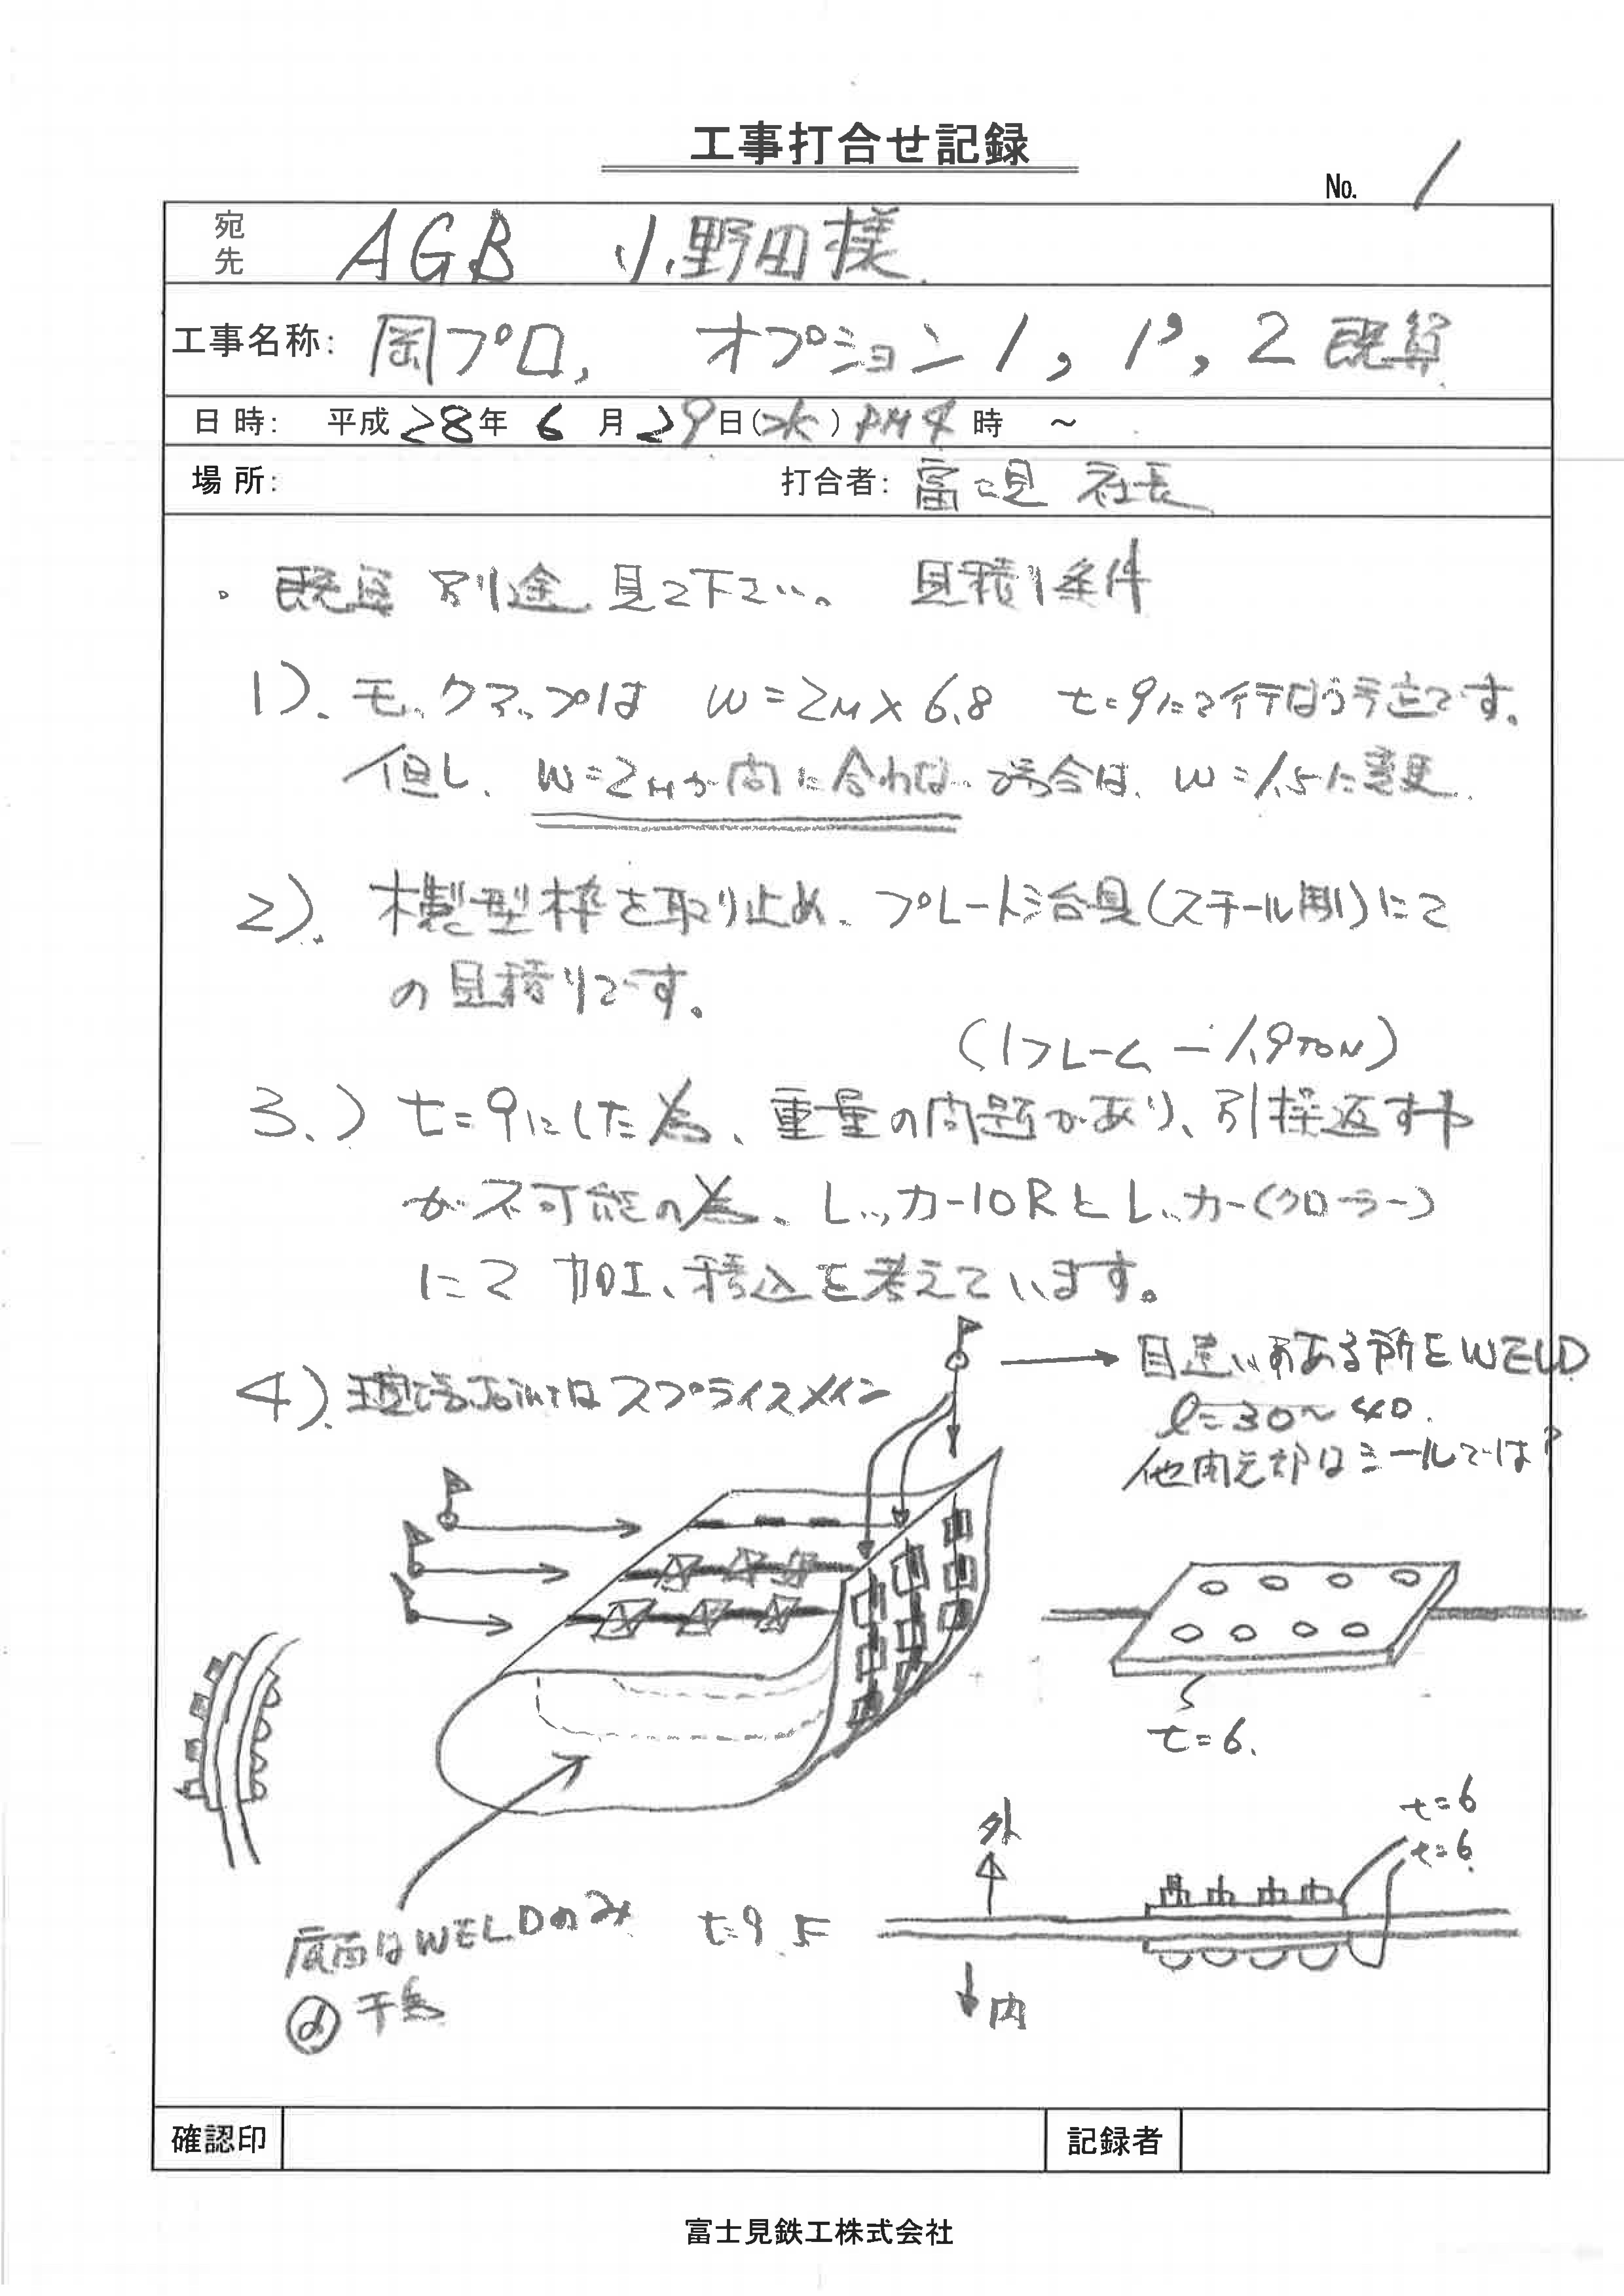 工事打合せ記録
No. 1
宛先 AGB 小野田様
工事名称: 岡プロ, オプション1, 1', 2 概算
日時: 平成28年6月29日(水) PM4時 ~
場所: 打合者: 富士見 社長
・概算 別途 見て下さい。 見積り条件
1). モックアップは w=2M×6.8 t=9にて行なう予定です。
但し、w=2Mが間に合わない場合は、w=1.5に変更.
2). 木製型枠を取り止め、プレート治具(スチール製)にて
の見積りです。
(1フレーム ー 1.9TON)
3.) t=9にした為、重量の問題があり、引操返す中
が不可能の為、レッカー10Rとレッカー(クローラー)
にて 加工、積込を考えています。
4). 現場Jointはスプライスメイン
目違いのある所をWELD
l=30~40.
他は シールでは?
t=6.
外
t=6
t=6.
底面はWELDのみ
t=9
内
千鳥
確認印
記録者
富士見鉄工株式会社